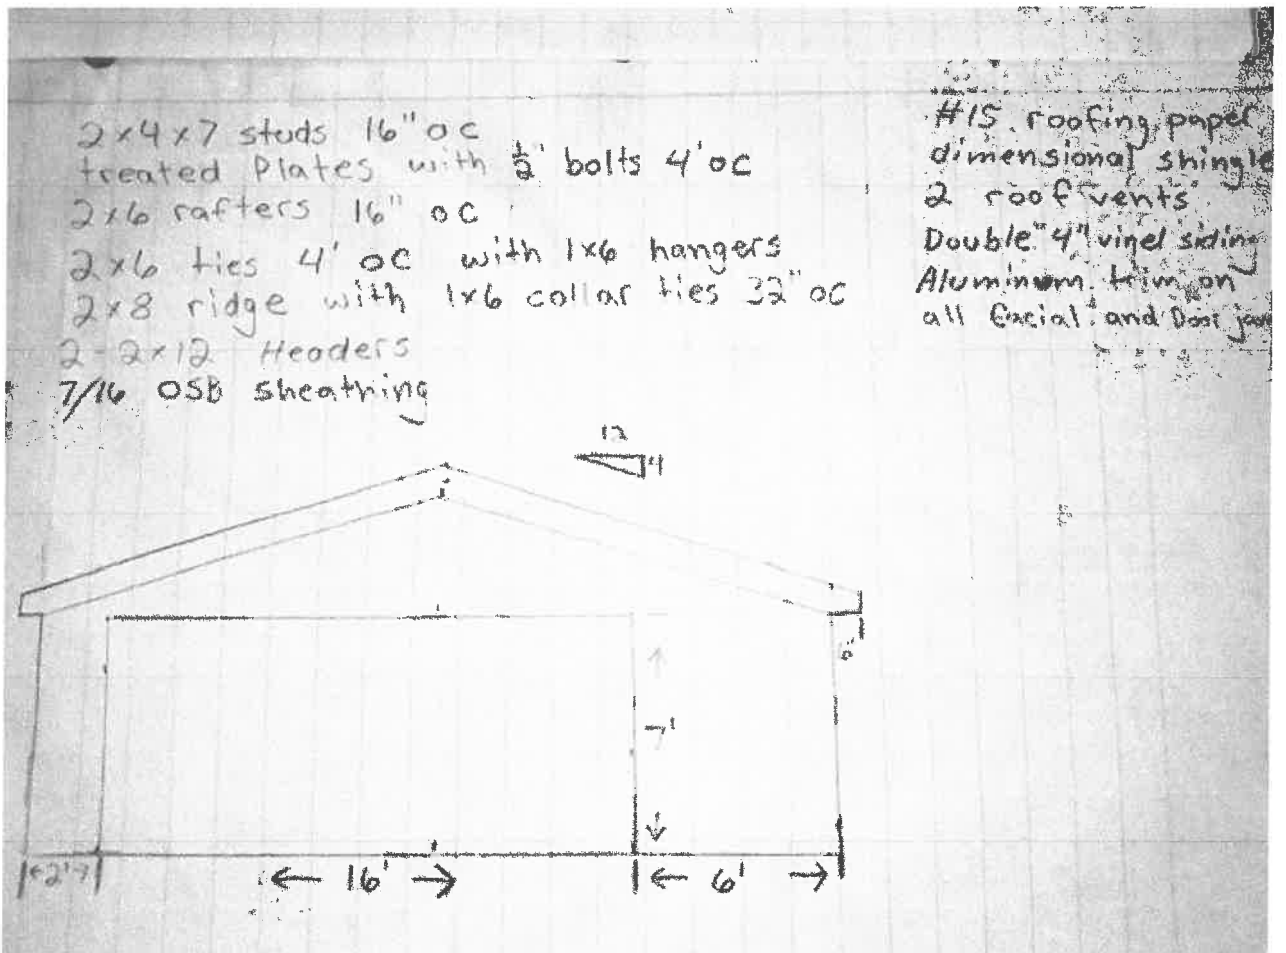 2x4x7 studs 16" oc
treated Plates with ½" bolts 4' oc
2x6 rafters 16" oc
2x6 ties 4' oc with 1x6 hangers
2x8 ridge with 1x6 collar ties 32" oc
2-2x12 Headers
7/16 OSB sheathing
#15 roofing paper
dimensional shingle
2 roof vents
Double "4" vinel siding
Aluminum trim on
all facial and Door
12
4
6"
7'
2'
16'
6'